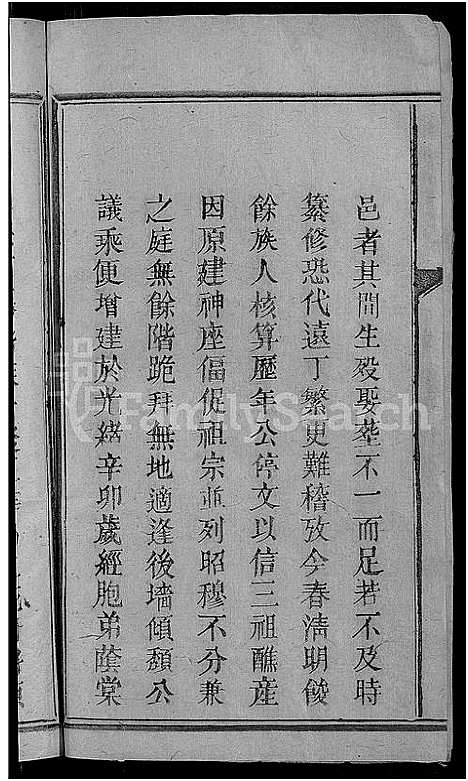 邑者其間生殁娶塟不一而足若不及時
纂修恐代遠丁繁更難稽攷今春清明餕
餘族人核算歷年公停文以信三祖醮産
因原建神座偪促祖宗並列昭穆不分兼
之庭無餘階跪拜無地適逢後墻傾頽公
議乘便增建於光緒辛卯歲經胞弟蔭棠
FamilySearch